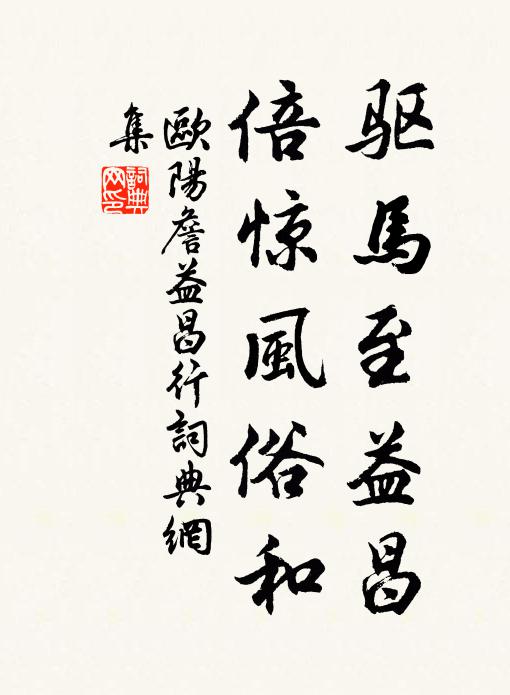 驱馬至益昌
倍惊風俗和
歐陽詹益昌行詞典網
集
詞典網印